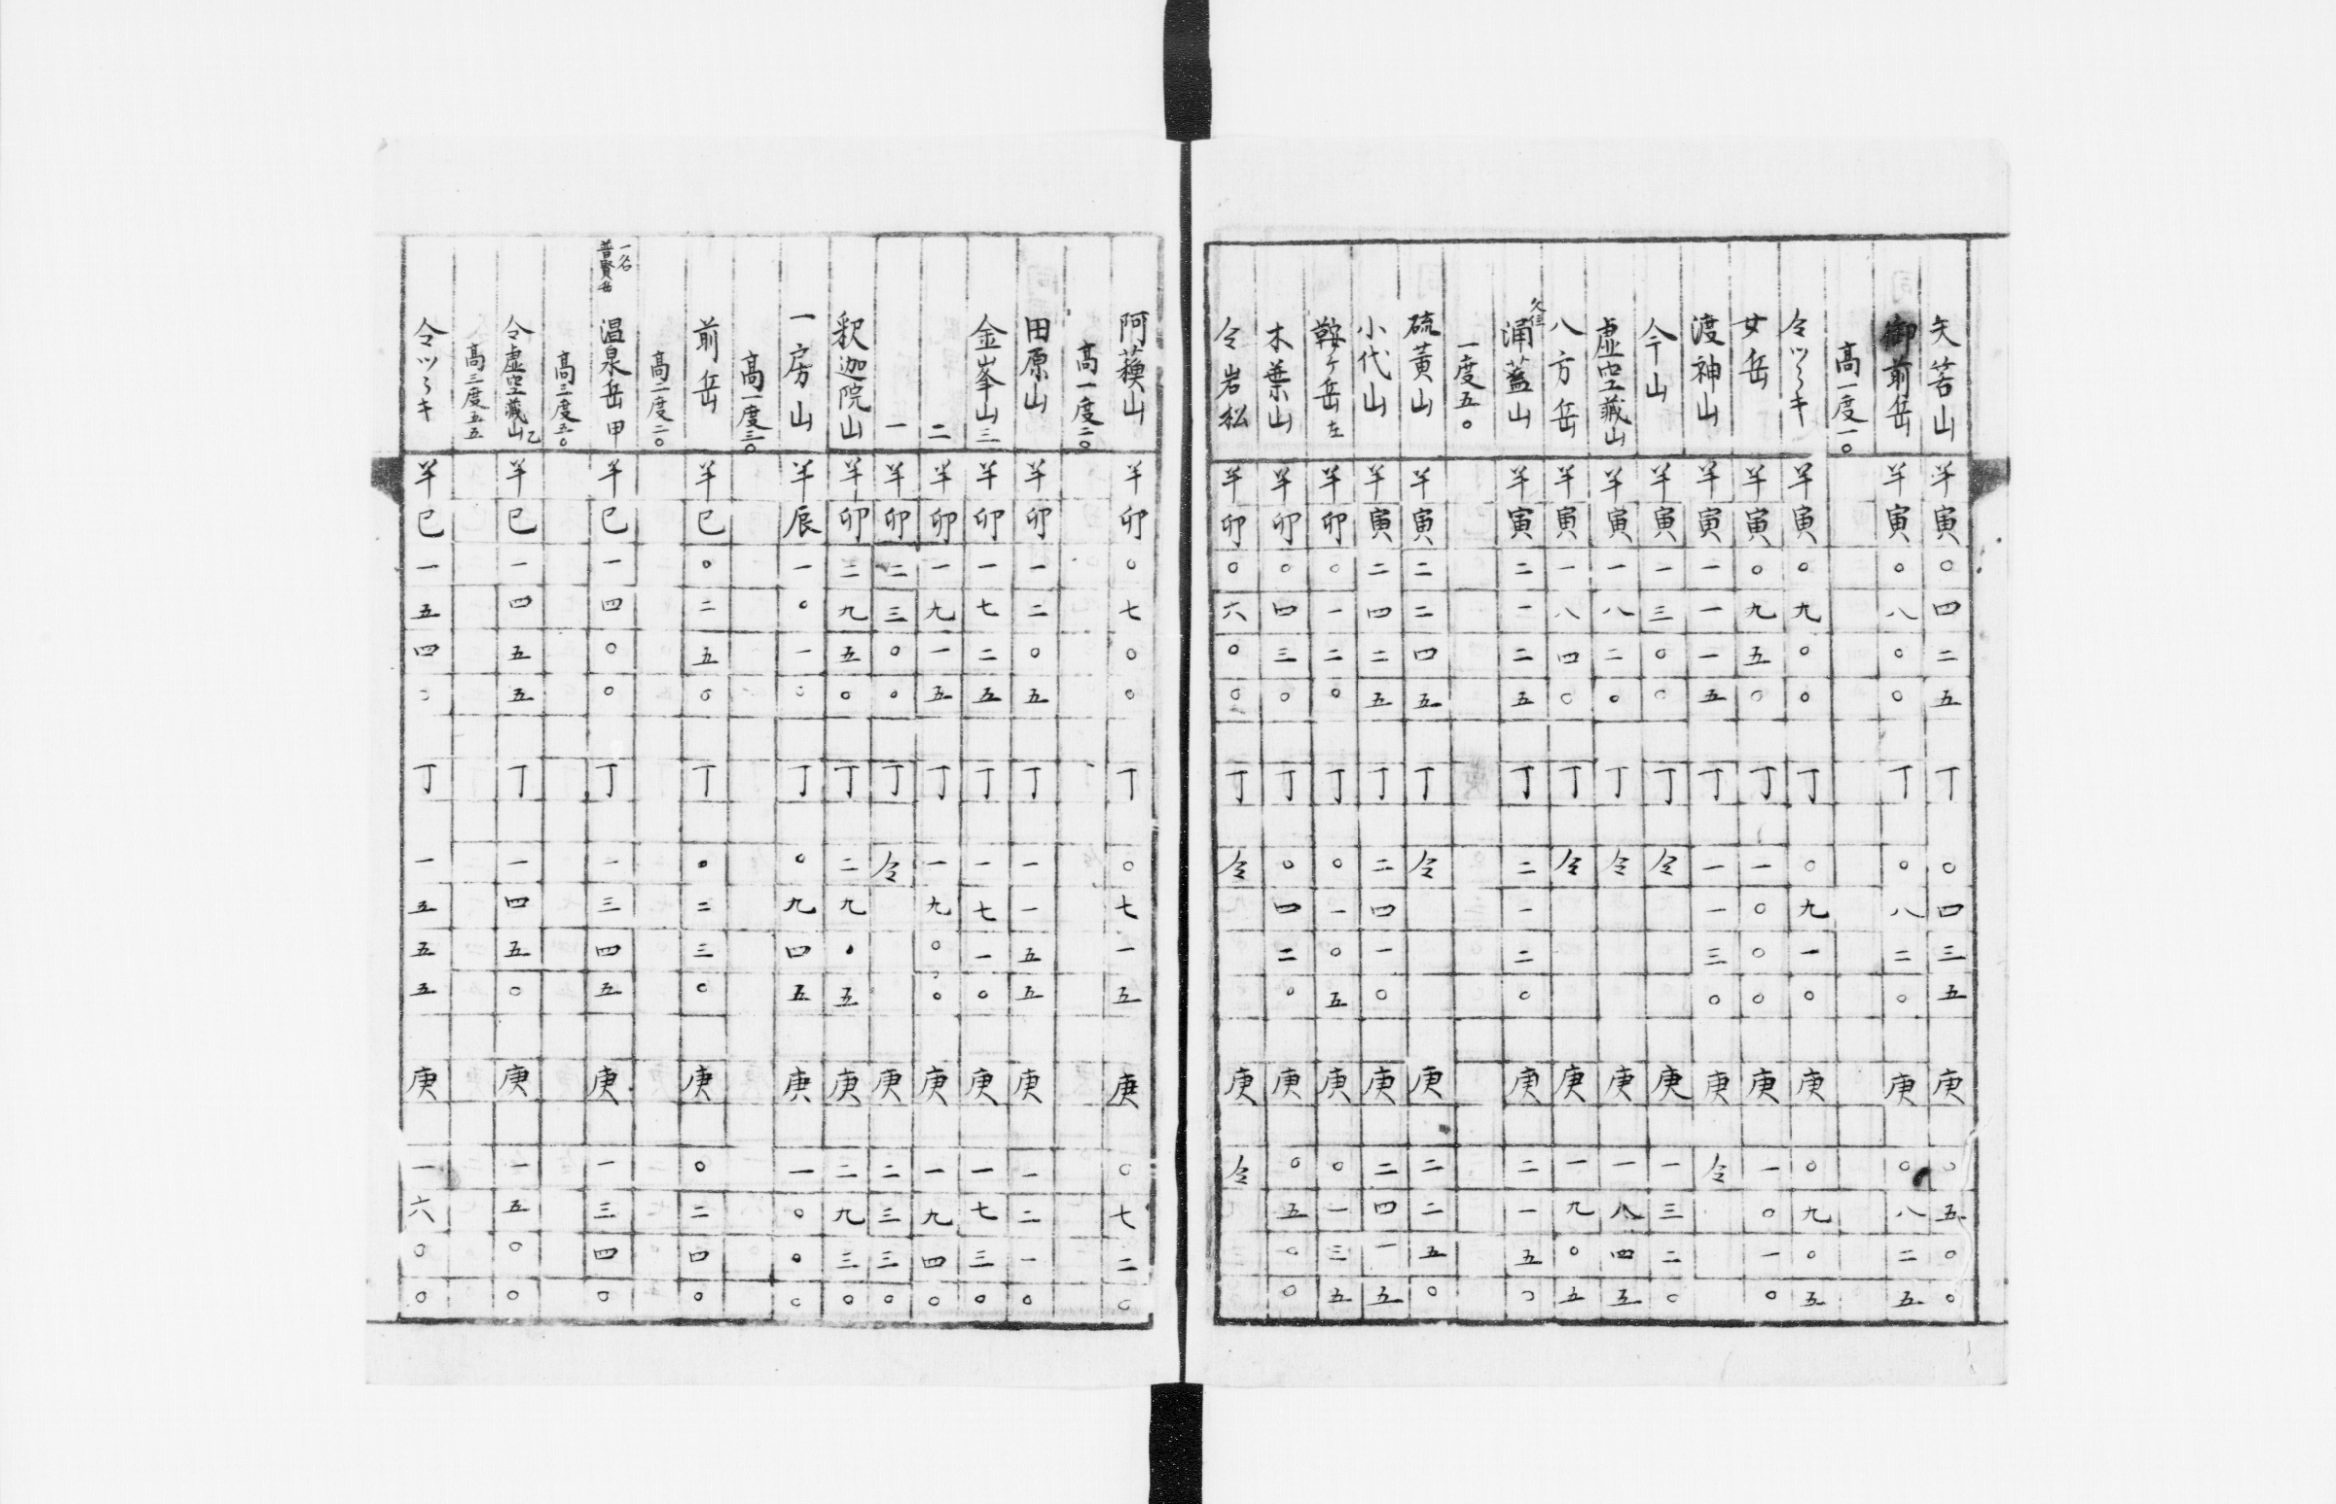 矢筈山 半寅 〇四二五 丁 〇四三五 庚 〇五〇〇
御前岳 半寅 〇八〇〇 丁 〇八二〇 庚 〇八二五
高一度一〇
令ツヽキ 半寅 〇九〇〇 丁 〇九一〇 庚 〇九〇五
女岳 半寅 〇九五〇 丁 一〇〇〇 庚 一〇一〇
渡神山 半寅 一一一五 丁 一一三〇 庚 令
今山 半寅 一三〇〇 丁 令 庚 一三二〇
虚空蔵山 半寅 一八二〇 丁 令 庚 一八四五
八方岳 半寅 一八四〇 丁 令 庚 一九〇五
久住
涌蓋山 半寅 二一二五 丁 二一二〇 庚 二一五〇
一度五〇
硫黄山 半寅 二二四五 丁 令 庚 二二五〇
小代山 半寅 二四二五 丁 二四一〇 庚 二四一五
鞍ヶ岳左 半卯 〇一二〇 丁 〇一〇五 庚 〇一三五
木葉山 半卯 〇四三〇 丁 〇四二〇 庚 〇五〇〇
令岩松 半卯 〇六〇〇 丁 令 庚 令
阿蘓山 半卯 〇七〇〇 丁 〇七一五 庚 〇七二〇
高一度二〇
田原山 半卯 一二〇五 丁 一一五五 庚 一二一〇
金峯山三 半卯 一七二五 丁 一七一〇 庚 一七三〇
二 半卯 一九一五 丁 一九〇〇 庚 一九四〇
一 半卯 二三〇〇 丁 令 庚 二三三〇
釈迦院山 半卯 二九五〇 丁 二九〇五 庚 二九三〇
一房山 半辰 一〇一〇 丁 〇九四五 庚 一〇〇〇
高一度三〇
前岳 半巳 〇二五〇 丁 〇二三〇 庚 〇二四〇
高二度二〇
一名
普賢岳
温泉岳甲 半巳 一四〇〇 丁 一三四五 庚 一三四〇
高三度五〇
令虚空蔵山乙 半巳 一四五五 丁 一四五〇 庚 一五〇〇
高三度五五
令ツヽキ 半巳 一五四〇 丁 一五五五 庚 一六〇〇